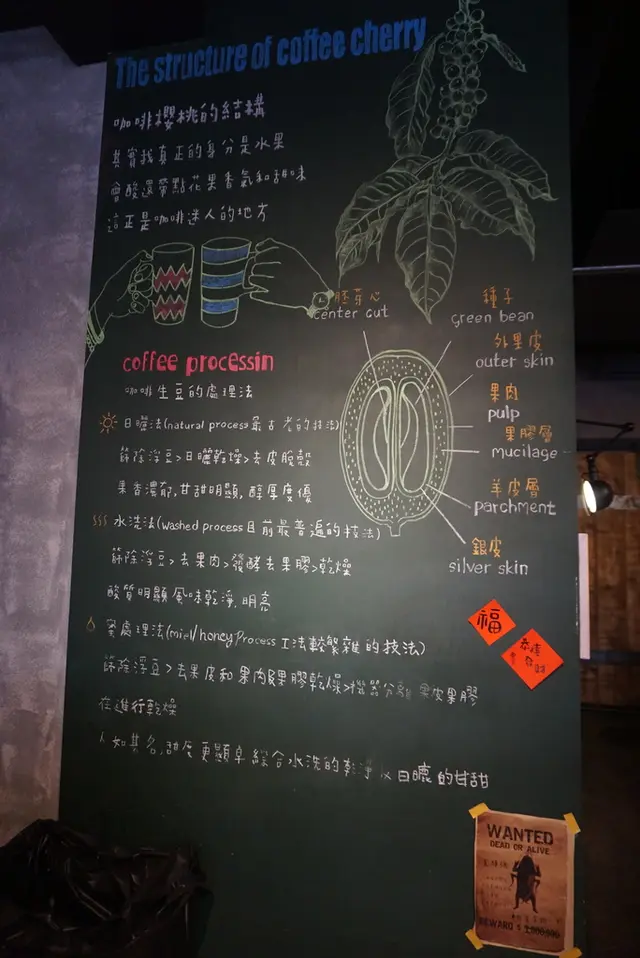 The structure of coffee cherry
咖啡櫻桃的結構
其實我真正的身分是水果
會酸還帶點花果香氣和甜味
這正是咖啡迷人的地方
胚芽心
center cut
種子
green bean
外果皮
outer skin
果肉
pulp
果膠層
mucilage
羊皮層
parchment
銀皮
silver skin
coffee processin
咖啡生豆的處理法
日曬法(natural process最古老的技法)
篩除浮豆>日曬乾燥>去皮脫殼
果香濃郁,甘甜明顯,醇厚度優
水洗法(washed process目前最普遍的技法)
篩除浮豆>去果肉>發酵去果膠>乾燥
酸質明顯風味乾淨,明亮
蜜處理法(miel/honey Process工法較繁雜的技法)
篩除浮豆>去果皮和果肉>果膠乾燥>機器分離果皮果膠
在進行乾燥
人如其名,甜度更顯卓綜合水洗的乾淨以日曬的甘甜
福
恭喜
發財
WANTED
DEAD OR ALIVE
REWARD $